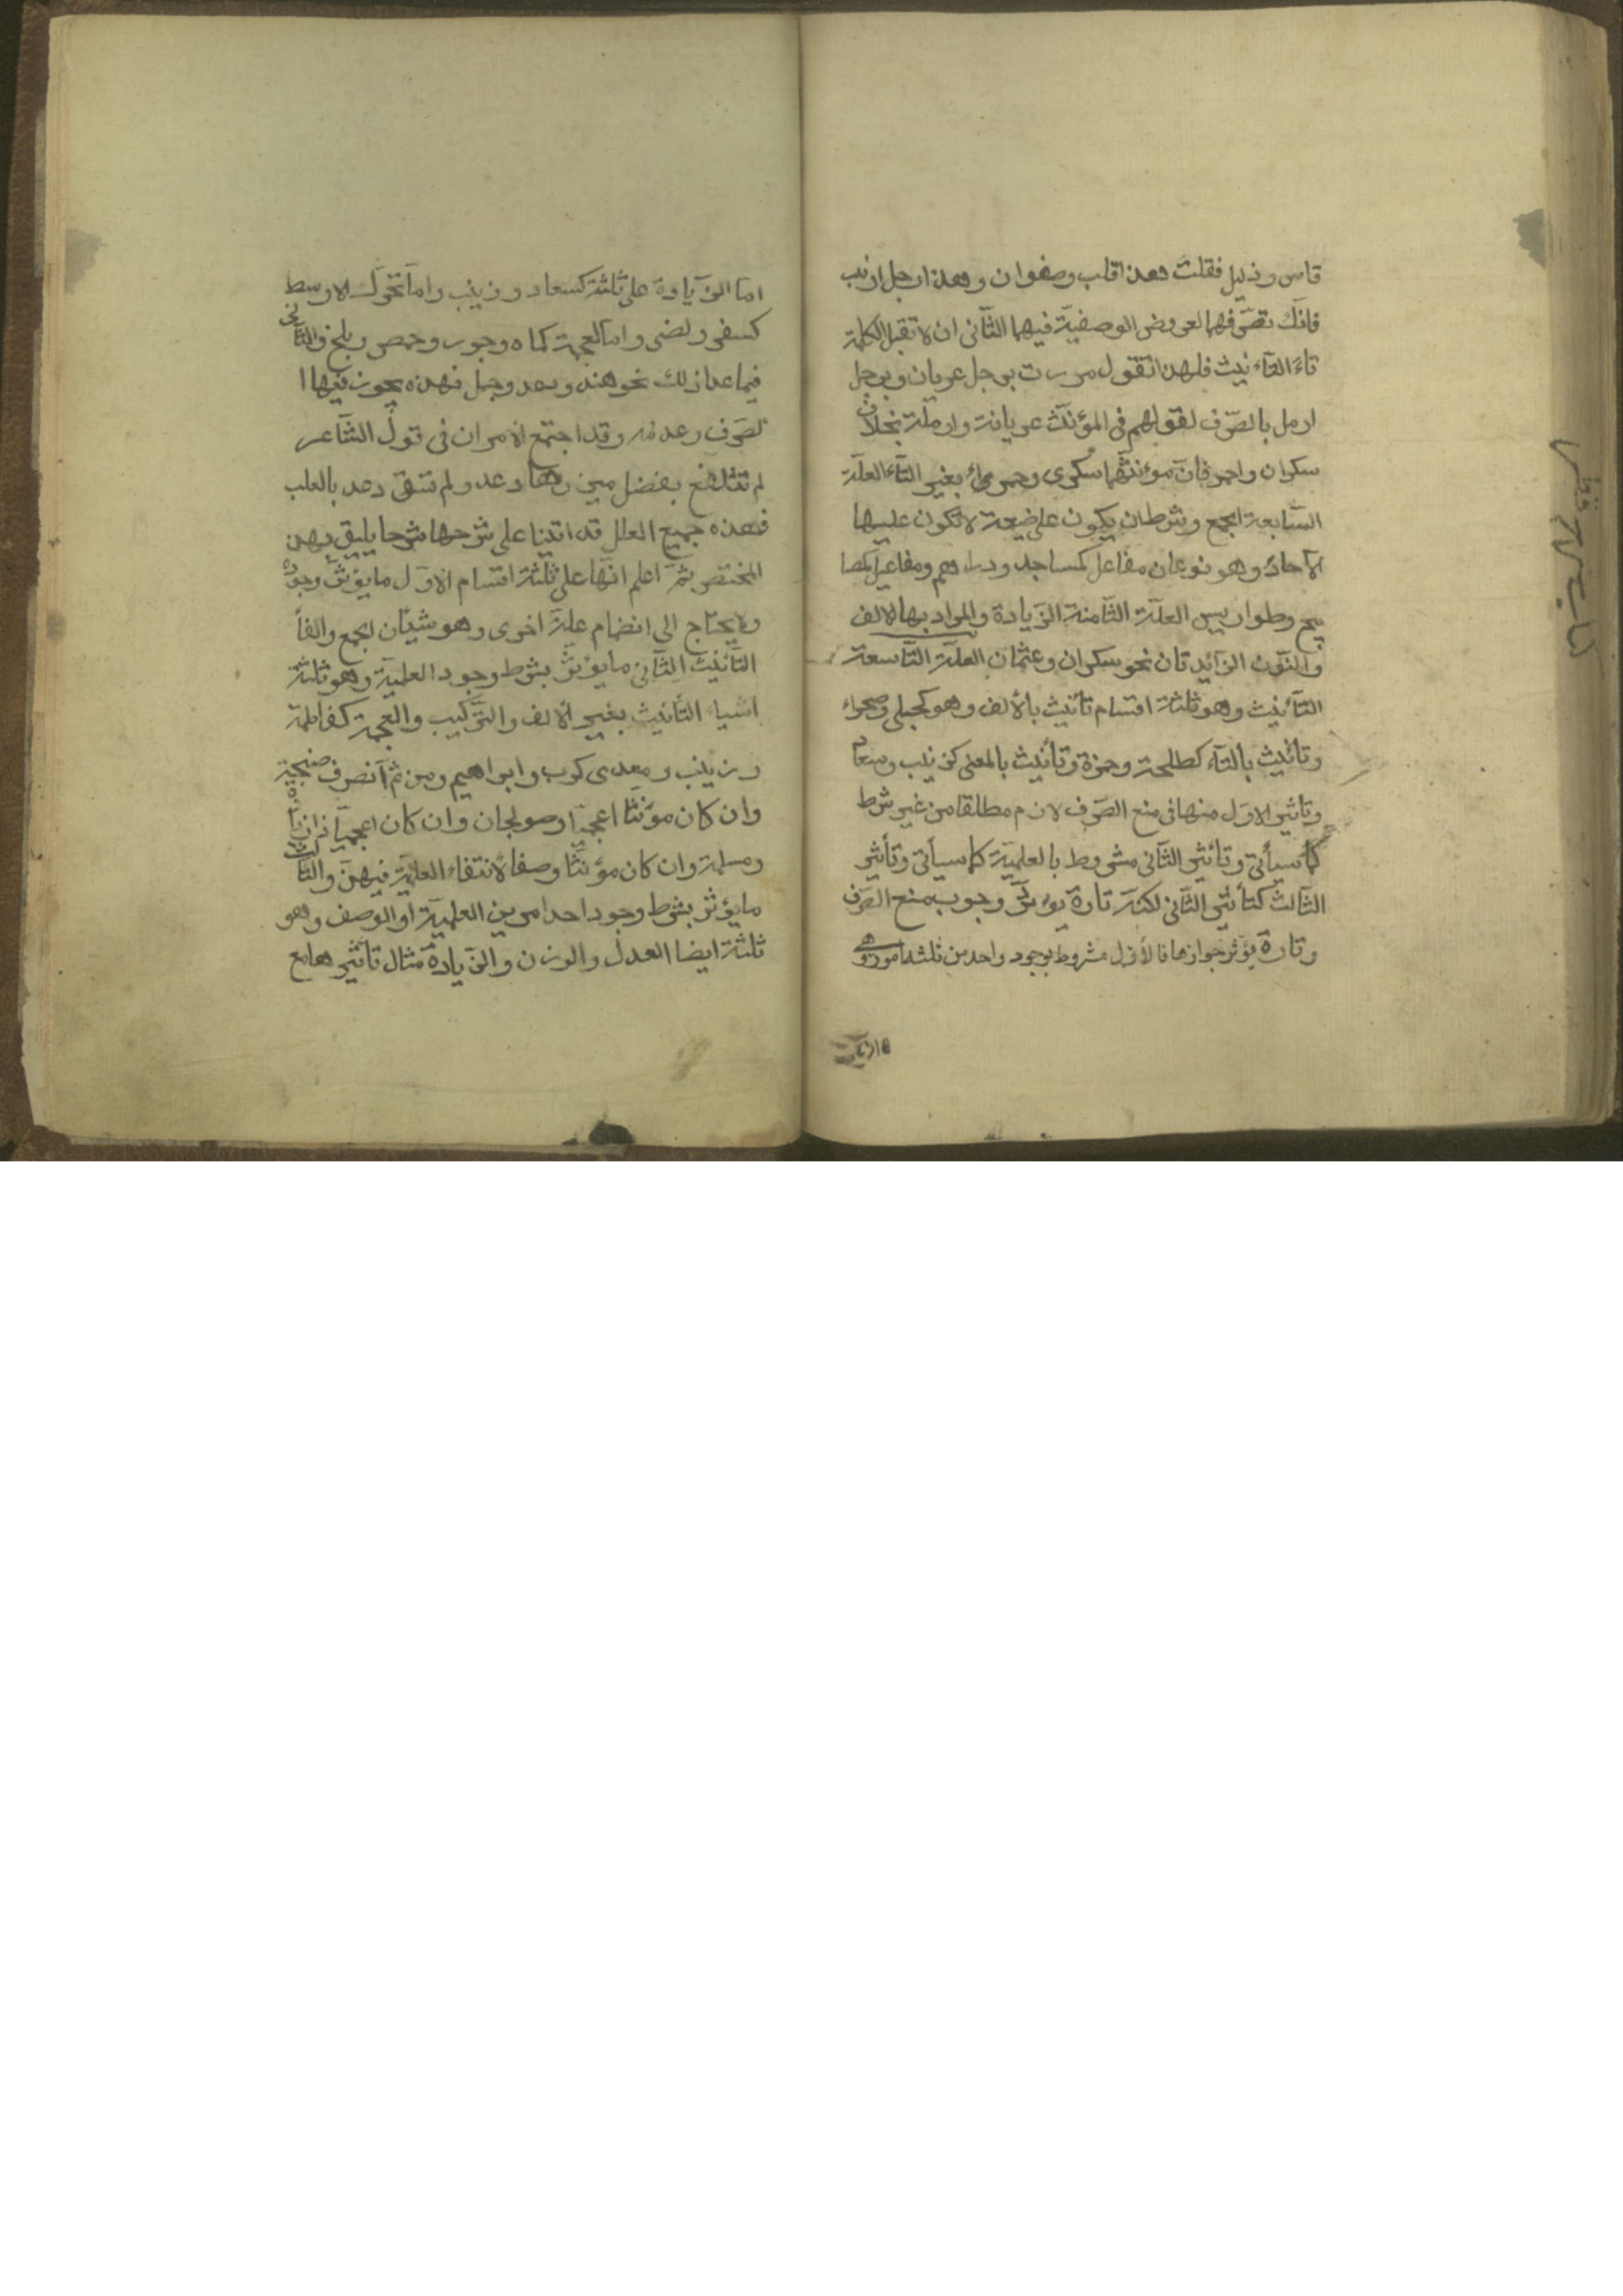 قاس وذليل فقلت هعذا قلب وصفوان وهعذا رجل ارنب
فانك تصرفهما لعروض الوصفية فيهما الثاني ان لا تقبل الكلمة
تاء التأنيث فلهذا تقول مررت برجل عريان وبرجل
ارمل بالصرف لقولهم في المؤنث عريانة وارملة بخلاف
سكران واحمر فان مؤنثهما سكرى وحمراء بغير التاء العلة
السابعة الجمع وشرطه ان يكون على صيغة لا تكون عليها
الآحاد وهو نوعان مفاعل كمساجد ودراهم ومفاعيل كمصا
بيح وطواويس العلة الثامنة الزيادة والمراد بها الالف
والنون الزائدتان نحو سكران وعثمان العلة التاسعة
التأنيث وهو ثلثة اقسام تأنيث بالألف وهو كحبلى وصحراء
وتأنيث بالتاء كطلحة وحمزة وتأنيث بالمعنى كزينب وسعاد
وتاثير الاول منها في منع الصرف لازم مطلقا من غير شرط
كما سيأتي وتأثير الثاني مشروط بالعلمية كما سيأتي وتأثير
الثالث كتأثير الثاني لكنه تارة يؤثر وجوب منع الصرف
وتارة يؤثر جوازها فالأول مشروط بوجود واحد من ثلثة امور وهي
اما الزيادة على ثلثة كسعاد وزينب واما تحرك الاوسط
كسقر ولضى واما العجمة كماه وجور وحمص وبلخ والثاني
فيما عدا ذلك نحو هند ودعد وجمل فهذه يجوز فيها ا
لصرف وعدمه وقد اجتمع الامران في قول الشاعر
لم تتلفع بفضل ميزرها دعد ولم تسق دعد بالعلب
فهذه جميع العلل قد اتينا على شرحها شرحا يليق بهذ
المختصر ثم اعلم انها على ثلثة اقسام الاول ما يؤثر وجوده
ولا يحتاج الى انضمام علة اخرى وهو شيئان الجمع والفا
التأنيث الثاني ما يؤثر بشرط وجود العلمية وهو ثلثة
اشياء التأنيث بغير الالف والتركيب والعجمة كفاطمة
وزينب ومعدى كرب وابراهيم ومن ثم انصرف صنجة
وان كان مؤنثا اعجميا وصولجان وان كان اعجميا ذا زيادة
ومسلمة وان كان مؤنثا وصفا لانتفاء العلمية فيهن والثالث
ما يؤثر بشرط وجود احد امرين العلمية او الوصف وهو
ثلثة ايضا العدل والوزن والزيادة مثال تأثيرها مع